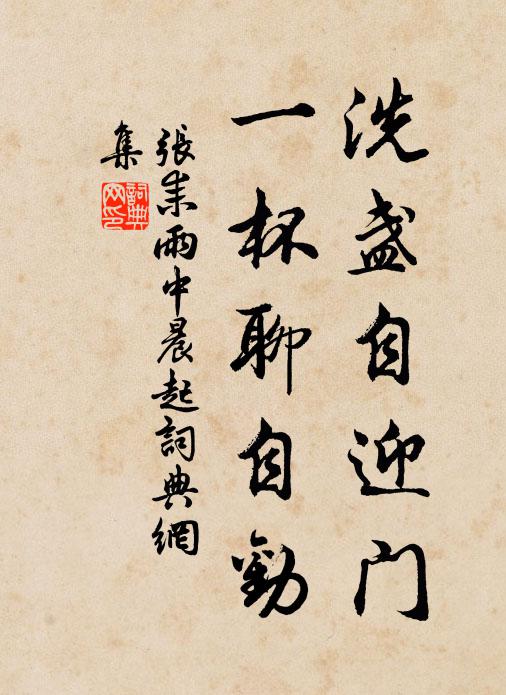 洗盏自迎门
一杯聊自勸
張耒雨中晨起詞典網
集
詞典网印